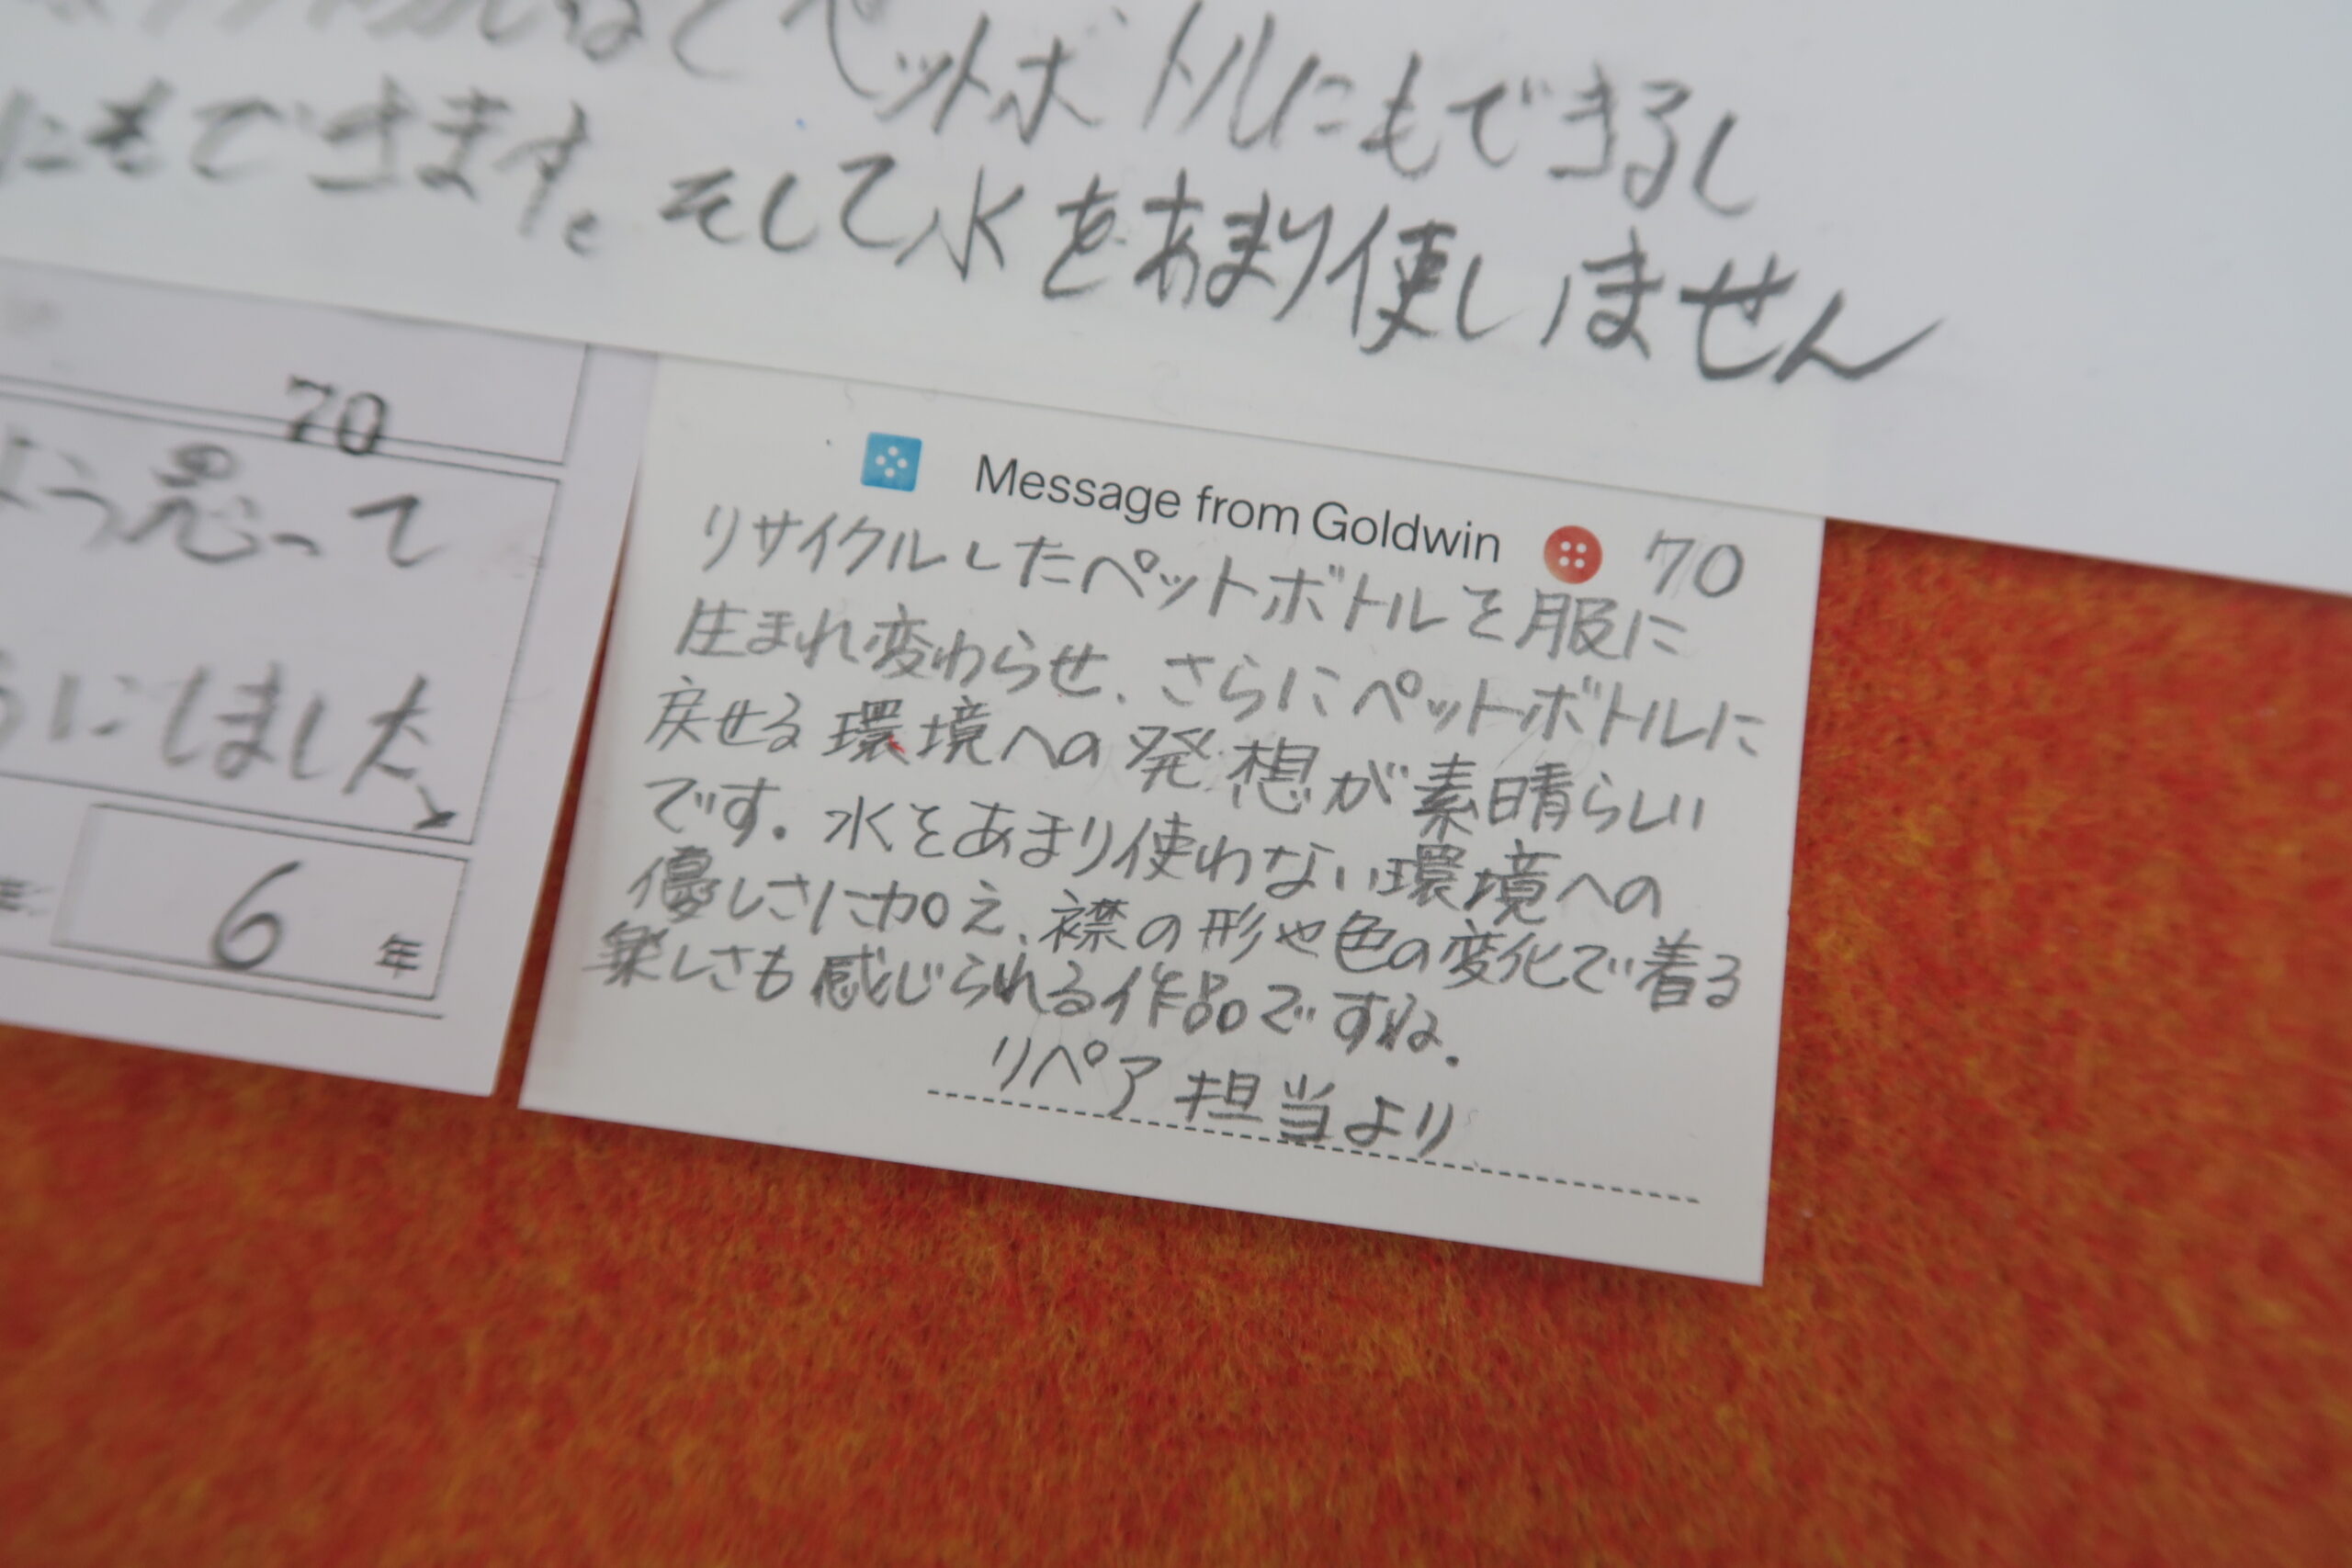 ペットボトルにもできるし
にもできます。そして水をあまり使しません
70
よう思って
うにしました
6 年
Message from Goldwin 70
リサイクルしたペットボトルを服に
生まれ変わらせ、さらにペットボトルに
戻せる環境への発想が素晴らしい
です。水をあまり使わない環境への
優しさに加え、襟の形や色の変化で着る
楽しさも感じられる作品ですね。
リペア担当より